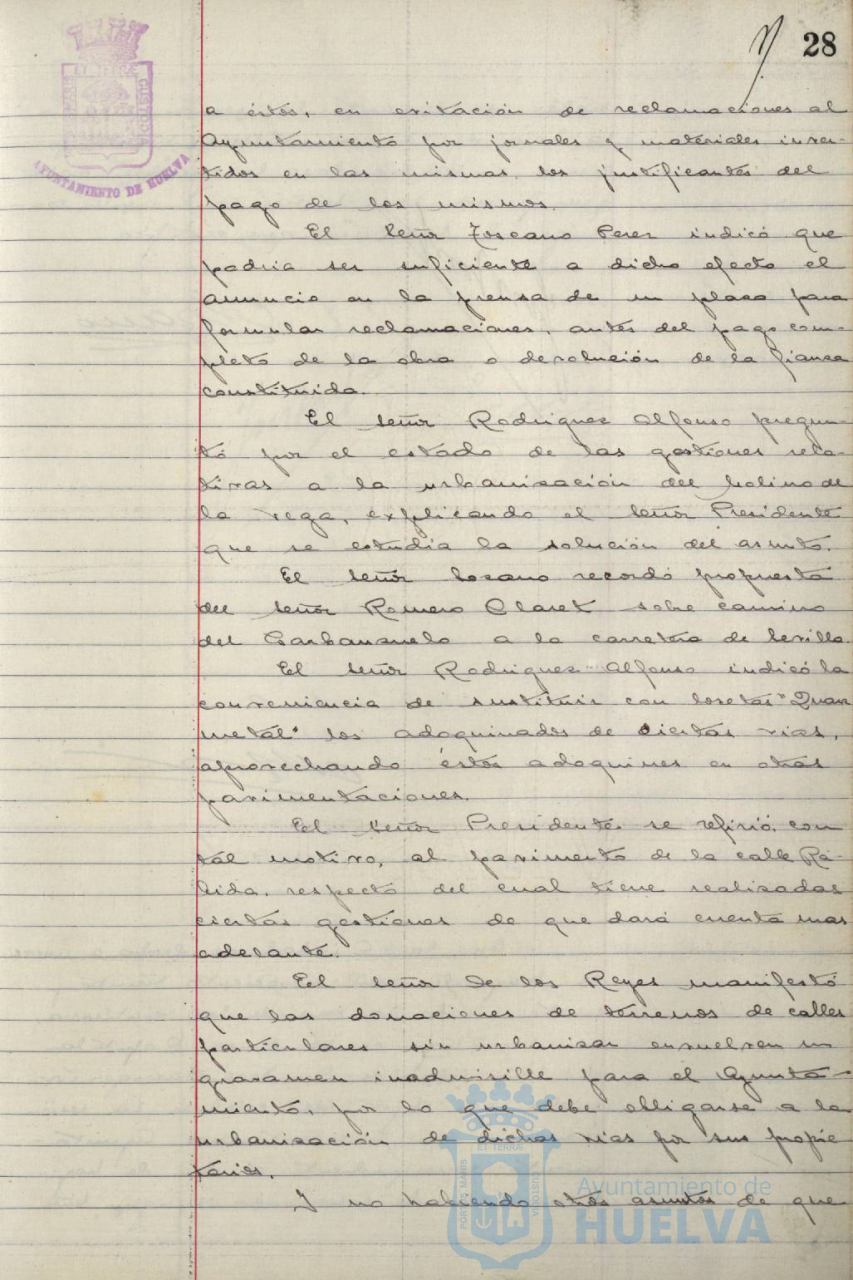 28
AYUNTAMIENTO DE HUELVA
a éstos, en evitación de reclamaciones al
Ayuntamiento por jornales y materiales inver-
tidos en las mismas, los justificantes del
pago de los mismos.
El señor Toscano Perez indicó que
podria ser suficiente a dicho efecto el
anuncio en la prensa de un plazo para
formular reclamaciones, antes del pago com-
pleto de la obra o devolución de la fianza
constituida.
El señor Rodriguez Alfonso pregun-
tó por el estado de las gestiones rela-
tivas a la urbanización del Molino de
la Vega, explicando el señor Presidente
que se estudia la solución del asunto.
El señor Lozano recordó propuesta
del señor Romero Claret sobre camino
del Garbanzuelo a la carretera de Sevilla.
El señor Rodriguez Alfonso indicó la
conveniencia de sustituir con losetas "Quar
metal" los adoquinados de ciertas vias,
aprovechando éstos adoquines en otras
pavimentaciones.
El señor Presidente se refirió, con
tal motivo, al pavimento de la calle Rá-
bida, respecto del cual tiene realizadas
ciertas gestiones de que dará cuenta mas
adelante.
El señor de los Reyes manifestó
que las donaciones de terrenos de calles
particulares sin urbanizar envuelven un
gravamen inadmisible para el Ayunta-
miento, por lo que debe obligarse a la
urbanización de dichas vias por sus propie
tarios.
Y no habiendo otros asuntos de que
Ayuntamiento de
HUELVA